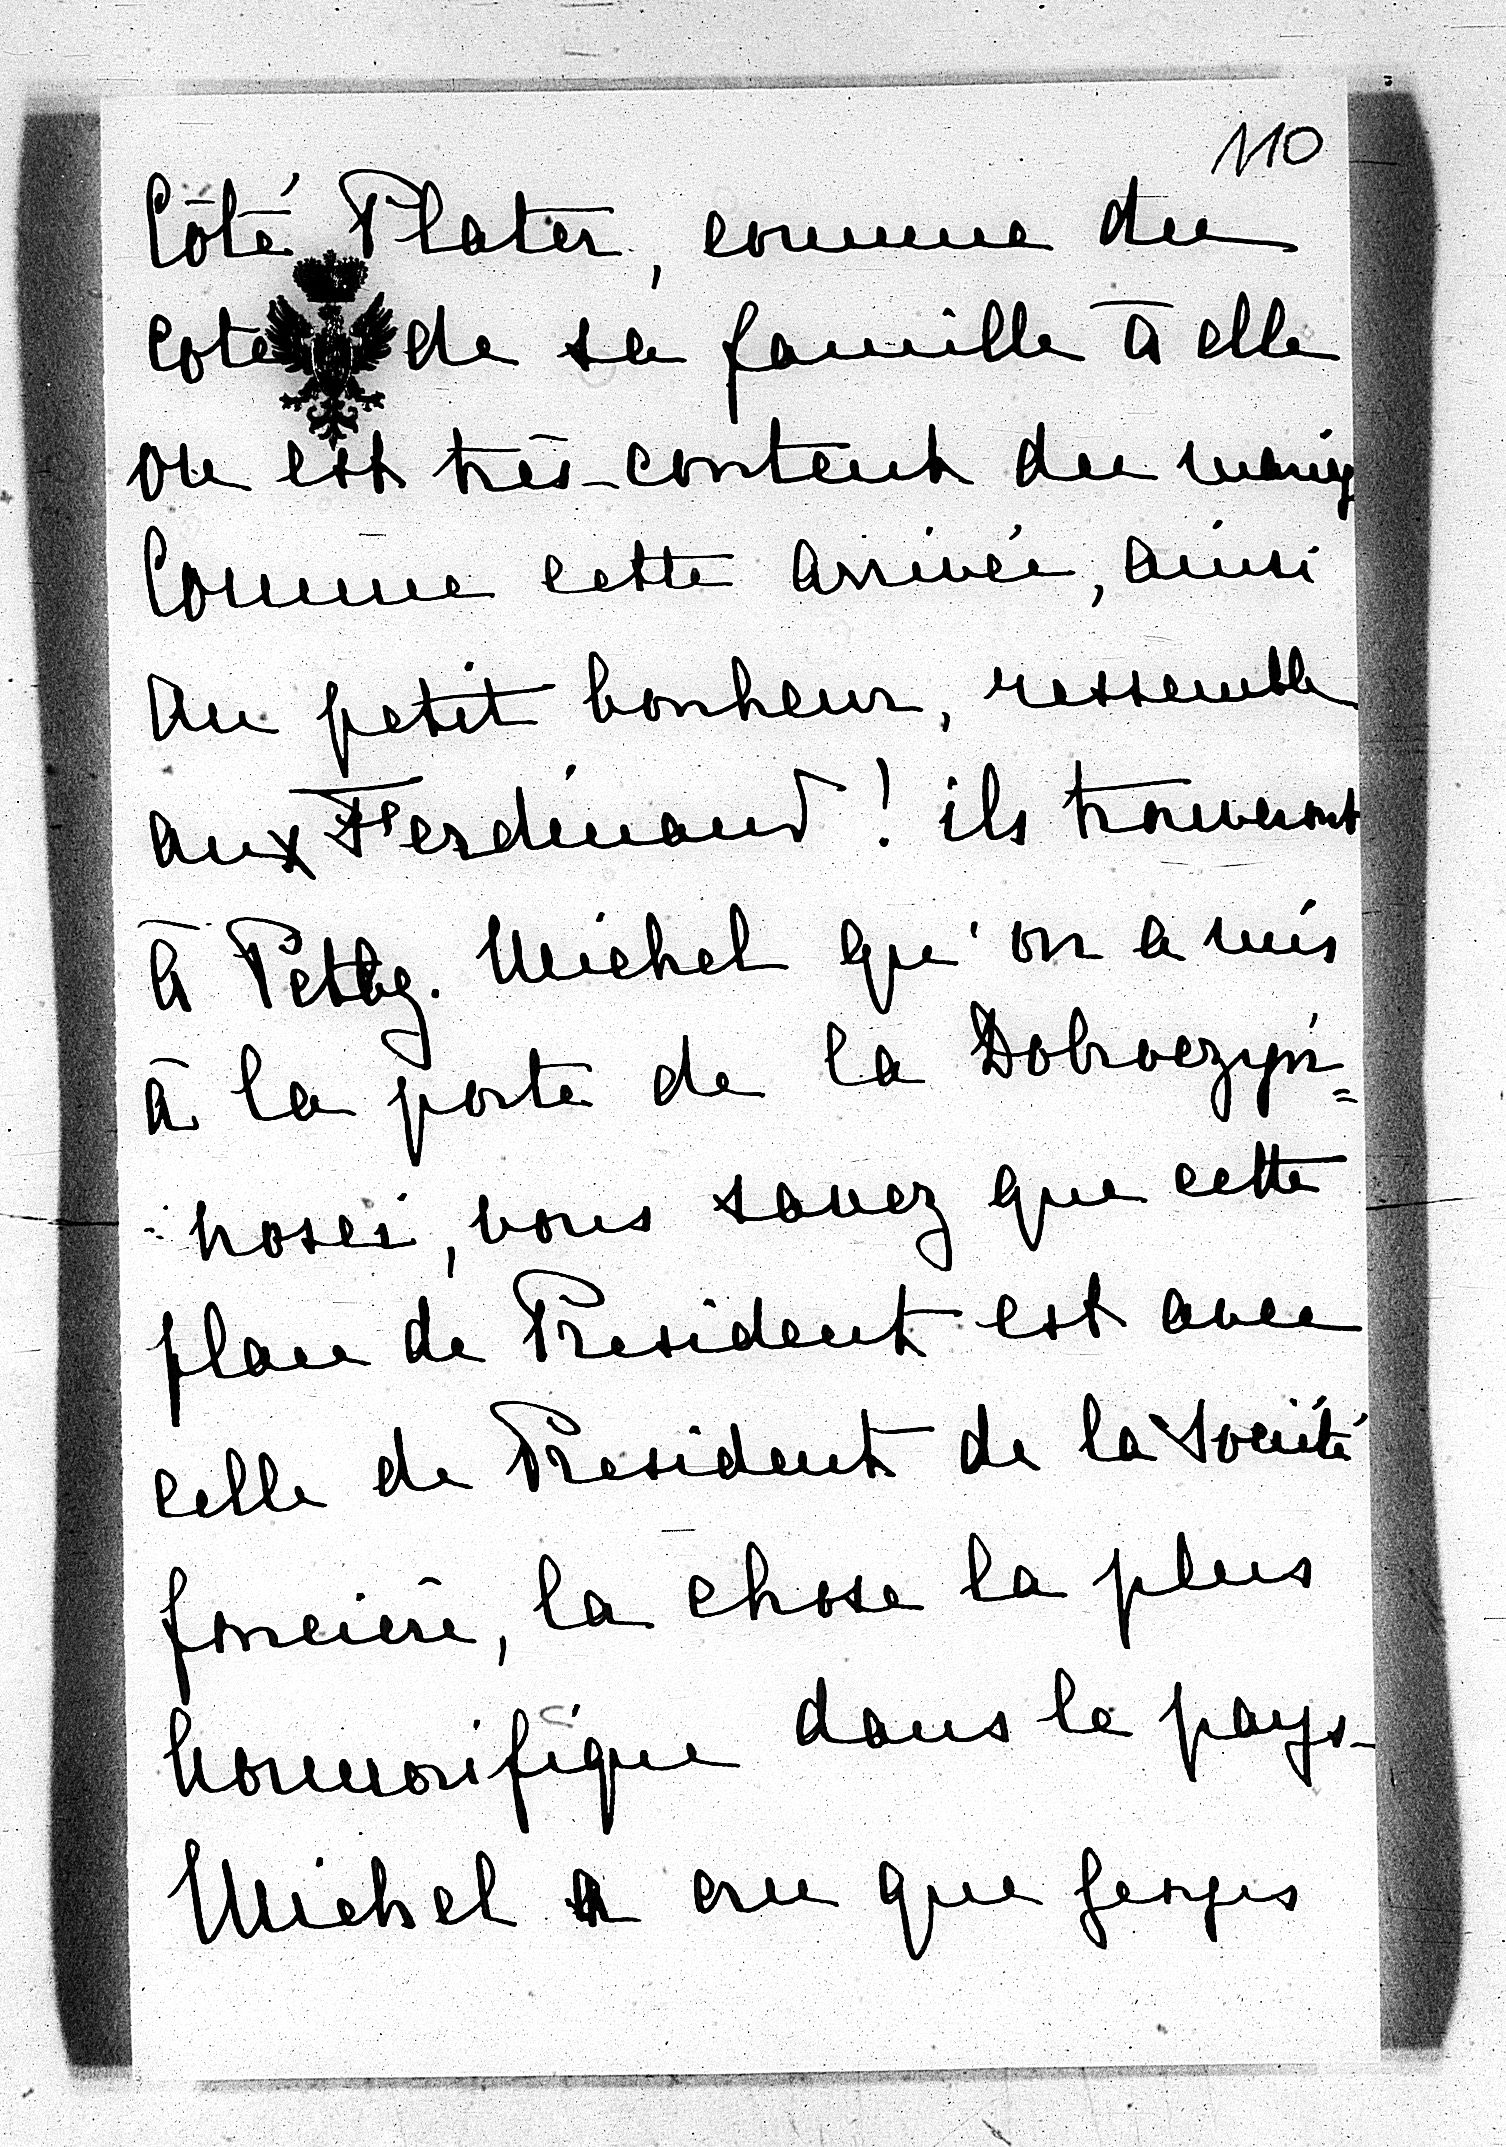 110
Côté Plater, comme du
cote de sa famille à elle
on est très-content du mariag
Comme cette arrivée, ainsi
au petit bonheur, ressemble
aux Ferdinand! ils trouveront
à Petbg. Michel qu'on a mis
à la porte de la Dobroczyn=
nosci, vous savez que cette
place de President est avec
celle de President de la Société
foncière, la chose la plus
honnorifique dans le pays_
Michel a cru que Georges